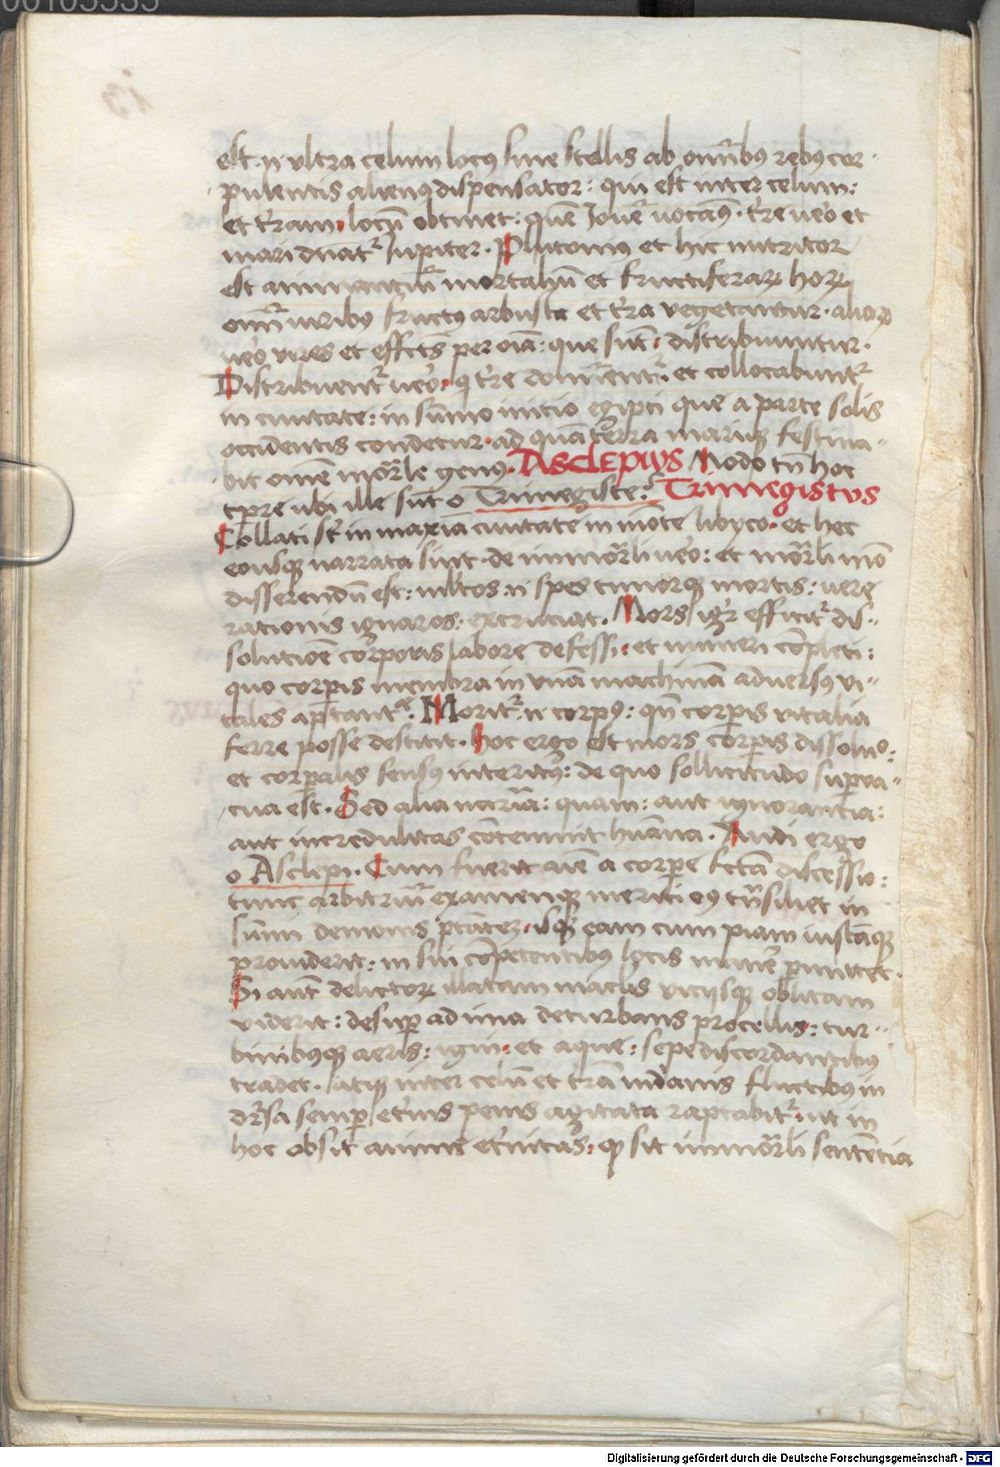 00105535
est .n̄ ultra celum locus sine stellis ab omnibꝰ rebꝰ cor-
pulentis alienꝰ dispensator: qui est inter celum:
et t̄ram locū obtinet: quē Jouē uocamꝰ. t̄re ūo et
mari dn̄atr̃ Jupiter. Plutoniꝰ et hic nutritor
est animantiū mortaliū et fructiferaꝝ hoꝝ
oīm uiribꝰ fructꝰ arbusta et t̄ra vegetantur. alioꝝ
ūo vires et effctꝰ per oīa: que sūt: distribuuntur.
Distribuentr̃ ūo: q̄ t̄re domīentr̃: et collocabuntr̃
in ciuitate: in sūmo initio egipti que a parte solis
occidentis condetur. ad quā terra mariqꝫ festina-
bit omē mōrle genus. Asclepius Modo tn̄ hoc
tp̄re ubi ille sūt o Trimegiste: Trimegistus
Collati st̄ in maxīa ciuitate in mōte libyco. et hec
eousqꝫ narrata sint. de immōrli ūo: et mōrli mō
disserendū est: multos .n̄ spes timorqꝫ mortis: uere
rationis ignaros: excruciat. Mors igr̃ efficitr̃ dis-
solutiōe corporis labore defessi: et numeri cōpleti:
quo corp̄is membra in unā machinā aduersꝰ ui-
tales aptantr̃. Moritr̃ .n̄ corpꝰ: qn̄ corp̄is vitalia
ferre posse destitit. Hoc ergo est mors corp̄is dissoluᵒ:
et corp̄alis sensꝰ interitꝰ: de quo sollicitudo suꝑua-
cua est. Sed alia nāria: quam: aut ignorantia:
aut incredulitas cōtemnit hūana. Audi ergo
o Asclepi. Cum fuerit aīe a corpe fcta discessio:
tunc arbitriū examenqꝫ meriti eꝰ trāsiliet in
sūmi demonis ptātez. isqꝫ eam cum piam iustāqꝫ
prouiderit: in sui cōpetentibꝰ locis manē ꝑmittet.
Si aut̄ delictoꝝ illatam maclis viciisqꝫ oblitam
viderit: desuꝑ ad ima deturbans procellis: tur-
binibꝰqꝫ aeris: igni: et aque: sepe discordantibꝰ
tradet. latqꝫ inter celū et t̄rā mdanis fluctibꝰ in
dr̄sa semꝑ et̄nis penis agitata raptabitr̃. ut in
hoc obsit anime et̄nitas: qꝫ sit immōrli sententia
Digitalisierung gefördert durch die Deutsche Forschungsgemeinschaft - DFG